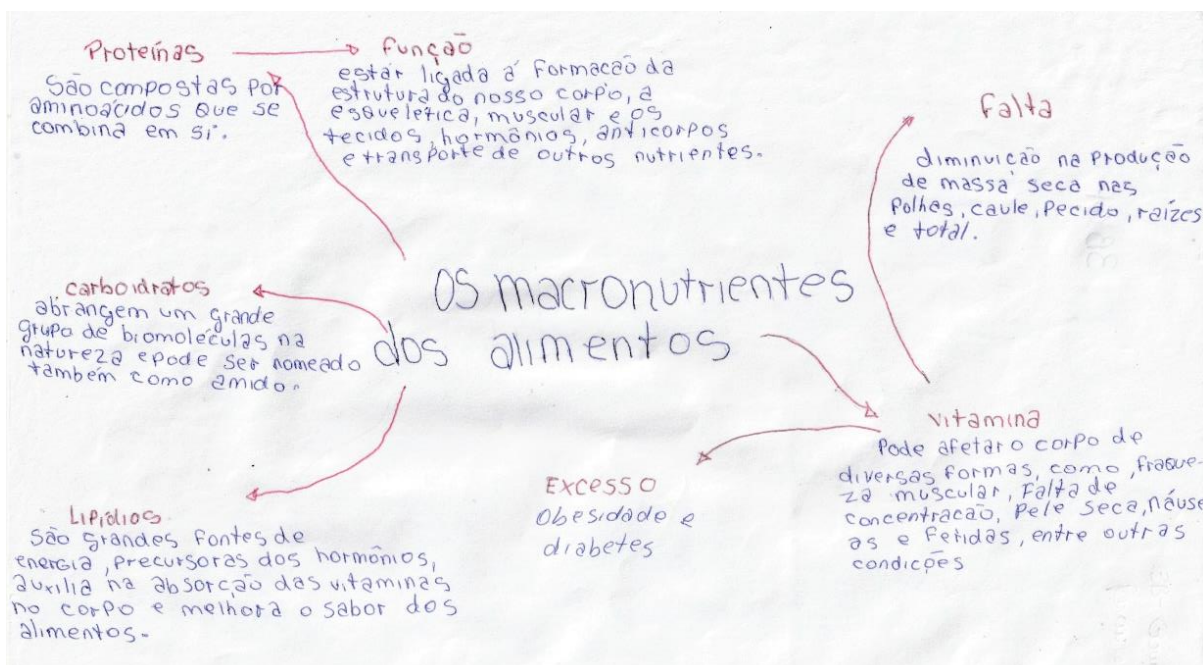 Proteínas
São compostas por
aminoácidos que se
combina em si.
função
estár ligada á formacão da
estrutura do nosso corpo, a
esquelética, muscular e os
tecidos, hormônios, anticorpos
e transporte de outros nutrientes.
falta
diminuicão na Produção
de massa seca nas
folhas, caule, Pecido, raízes
e total.
Os macronutrientes
dos alimentos
carboidratos
abrangem um grande
grupo de biomoléculas na
natureza e pode ser nomeado
também como amido.
Lipídios
São grandes fontes de
energia, precursoras dos hormônios,
auxilia na absorção das vitaminas
no corpo e melhora o sabor dos
alimentos.
Excesso
Obesidade e
diabetes
vitamina
Pode afetar o corpo de
diversas formas, como, fraque-
za muscular, Falta de
concentracão, Pele Seca, náuse
as e fetidas, entre outras
condicões